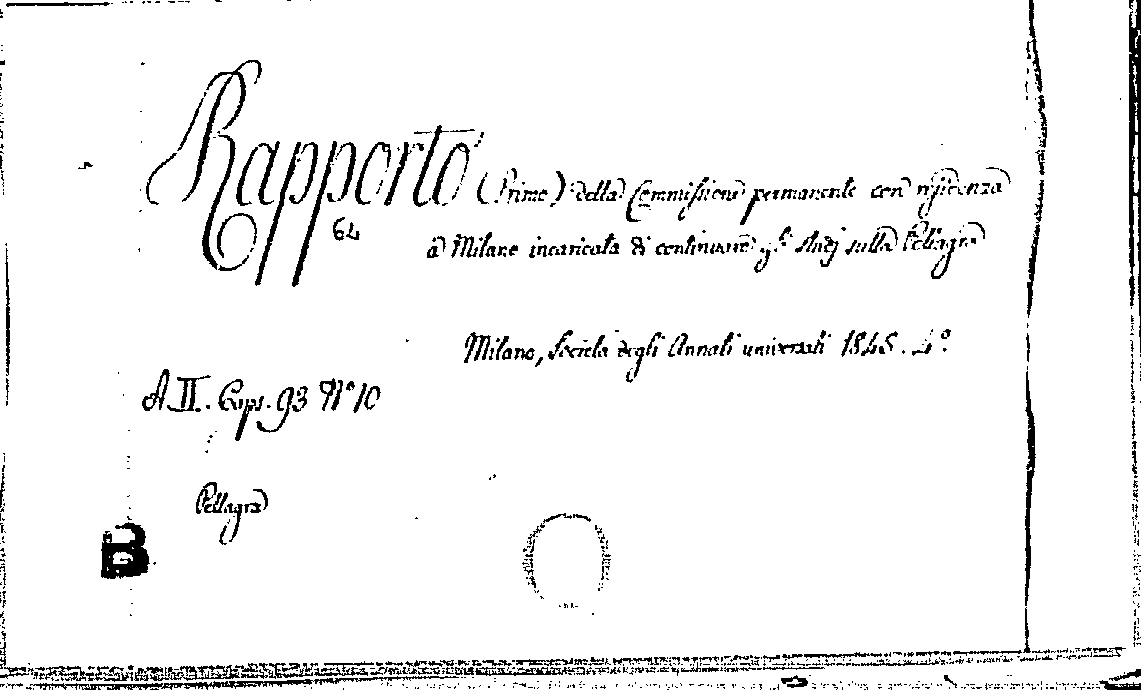 Rapporto (Primo) della Commissione permanente con residenza
64
a Milano incaricata di continuare gli studj sulla Pellagra
Milano, Società degli Annali universali 1845. 4º
A II. Caps. 93 Nº 10
Pellagra
B